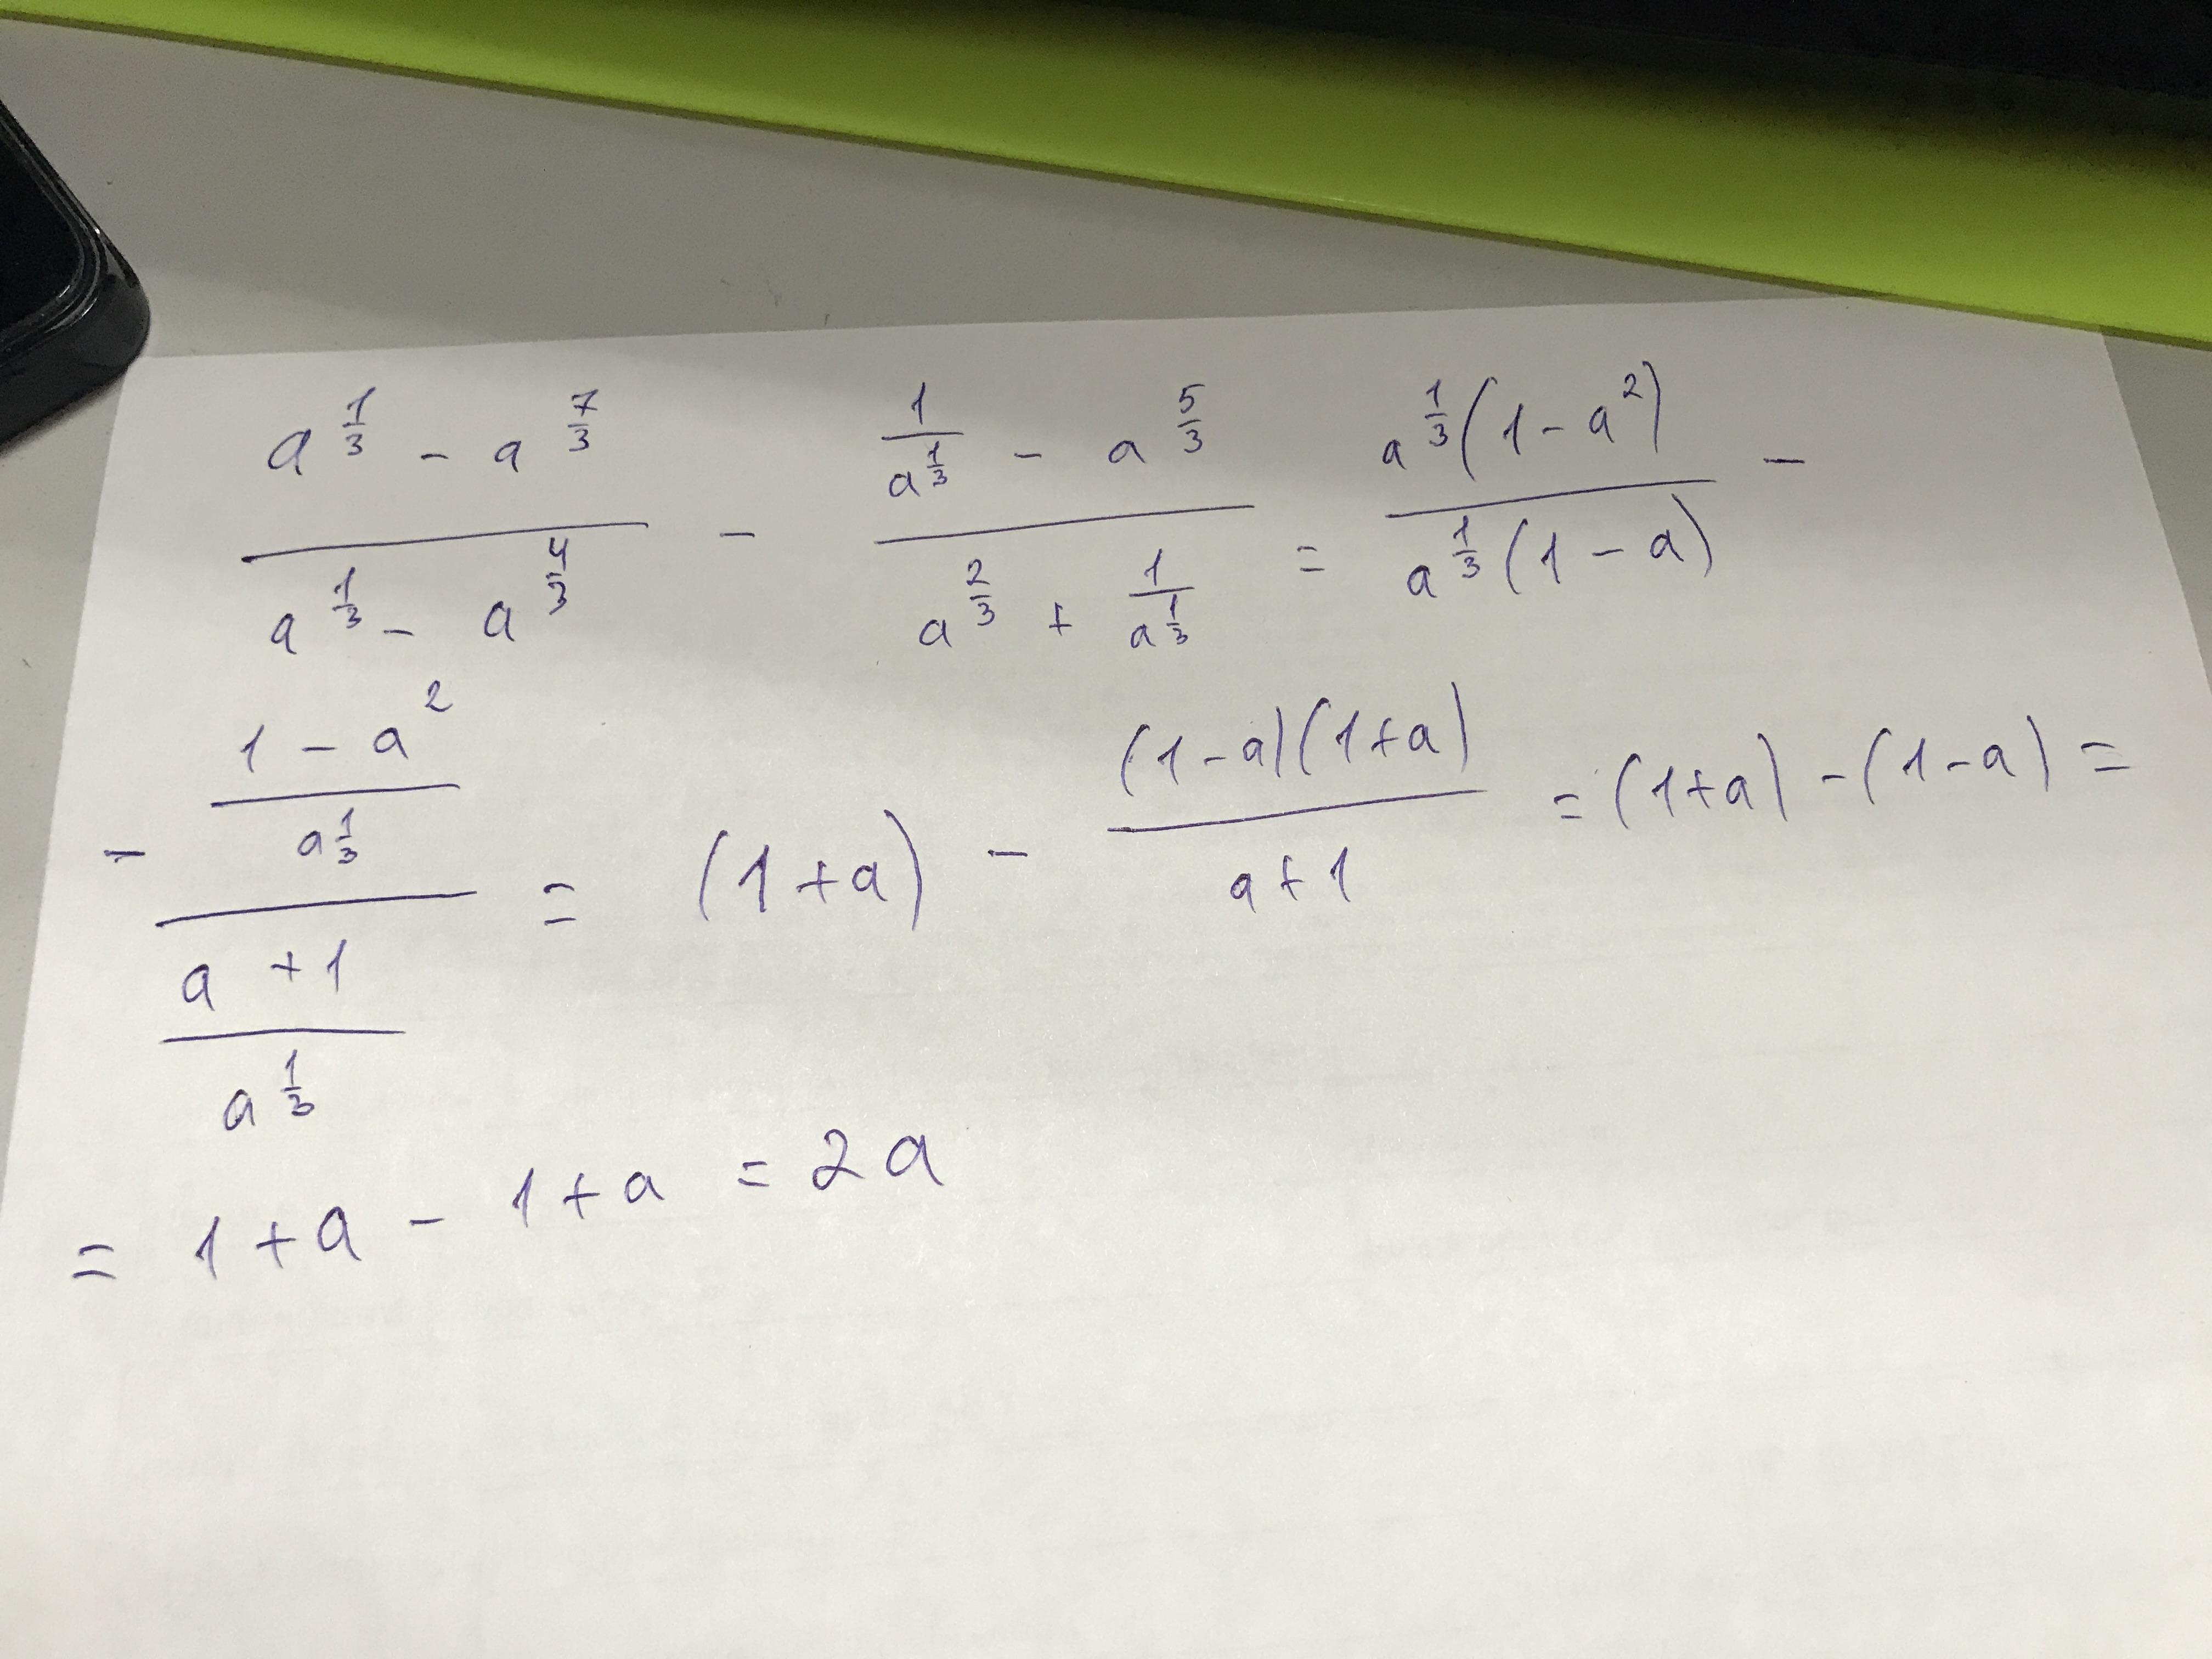 \frac{a^{\frac{1}{3}} - a^{\frac{7}{3}}}{a^{\frac{1}{3}} - a^{\frac{4}{3}}} - \frac{\frac{1}{a^{\frac{1}{3}}} - a^{\frac{5}{3}}}{a^{\frac{2}{3}} + \frac{1}{a^{\frac{1}{3}}}} = \frac{a^{\frac{1}{3}}(1 - a^2)}{a^{\frac{1}{3}}(1 - a)} -
- \frac{\frac{1 - a^2}{a^{\frac{1}{3}}}}{\frac{a + 1}{a^{\frac{1}{3}}}} = (1 + a) - \frac{(1 - a)(1 + a)}{a + 1} = (1 + a) - (1 - a) =
= 1 + a - 1 + a = 2a